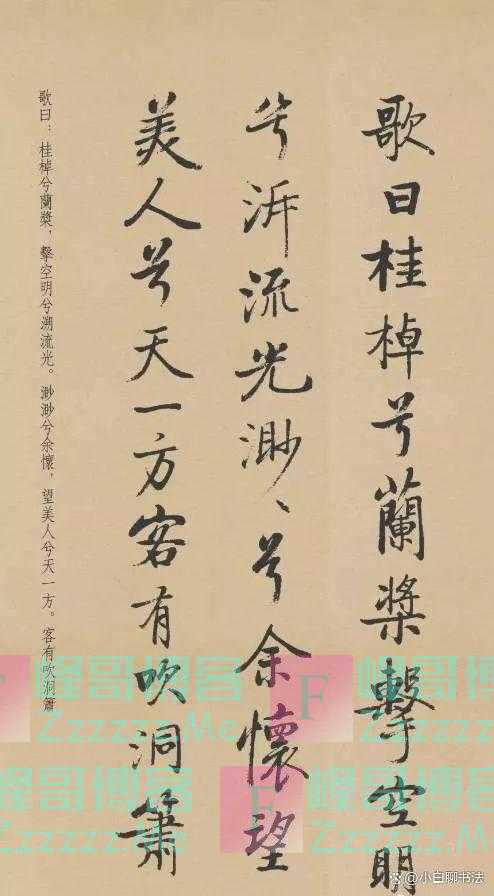 歌曰桂棹兮蘭槳擊空明
兮泝流光渺、兮余懷望
美人兮天一方客有吹洞簫
歌曰：桂棹兮蘭槳，擊空明兮溯流光。渺渺兮余懷，望美人兮天一方。客有吹洞簫
峰哥博客 F 峰哥博客
Zzzzzz.Me Zzzzzz.Me
峰哥博客 F 峰哥博客
Zzzzzz.Me Zzzzzz.Me
@小白聊书法